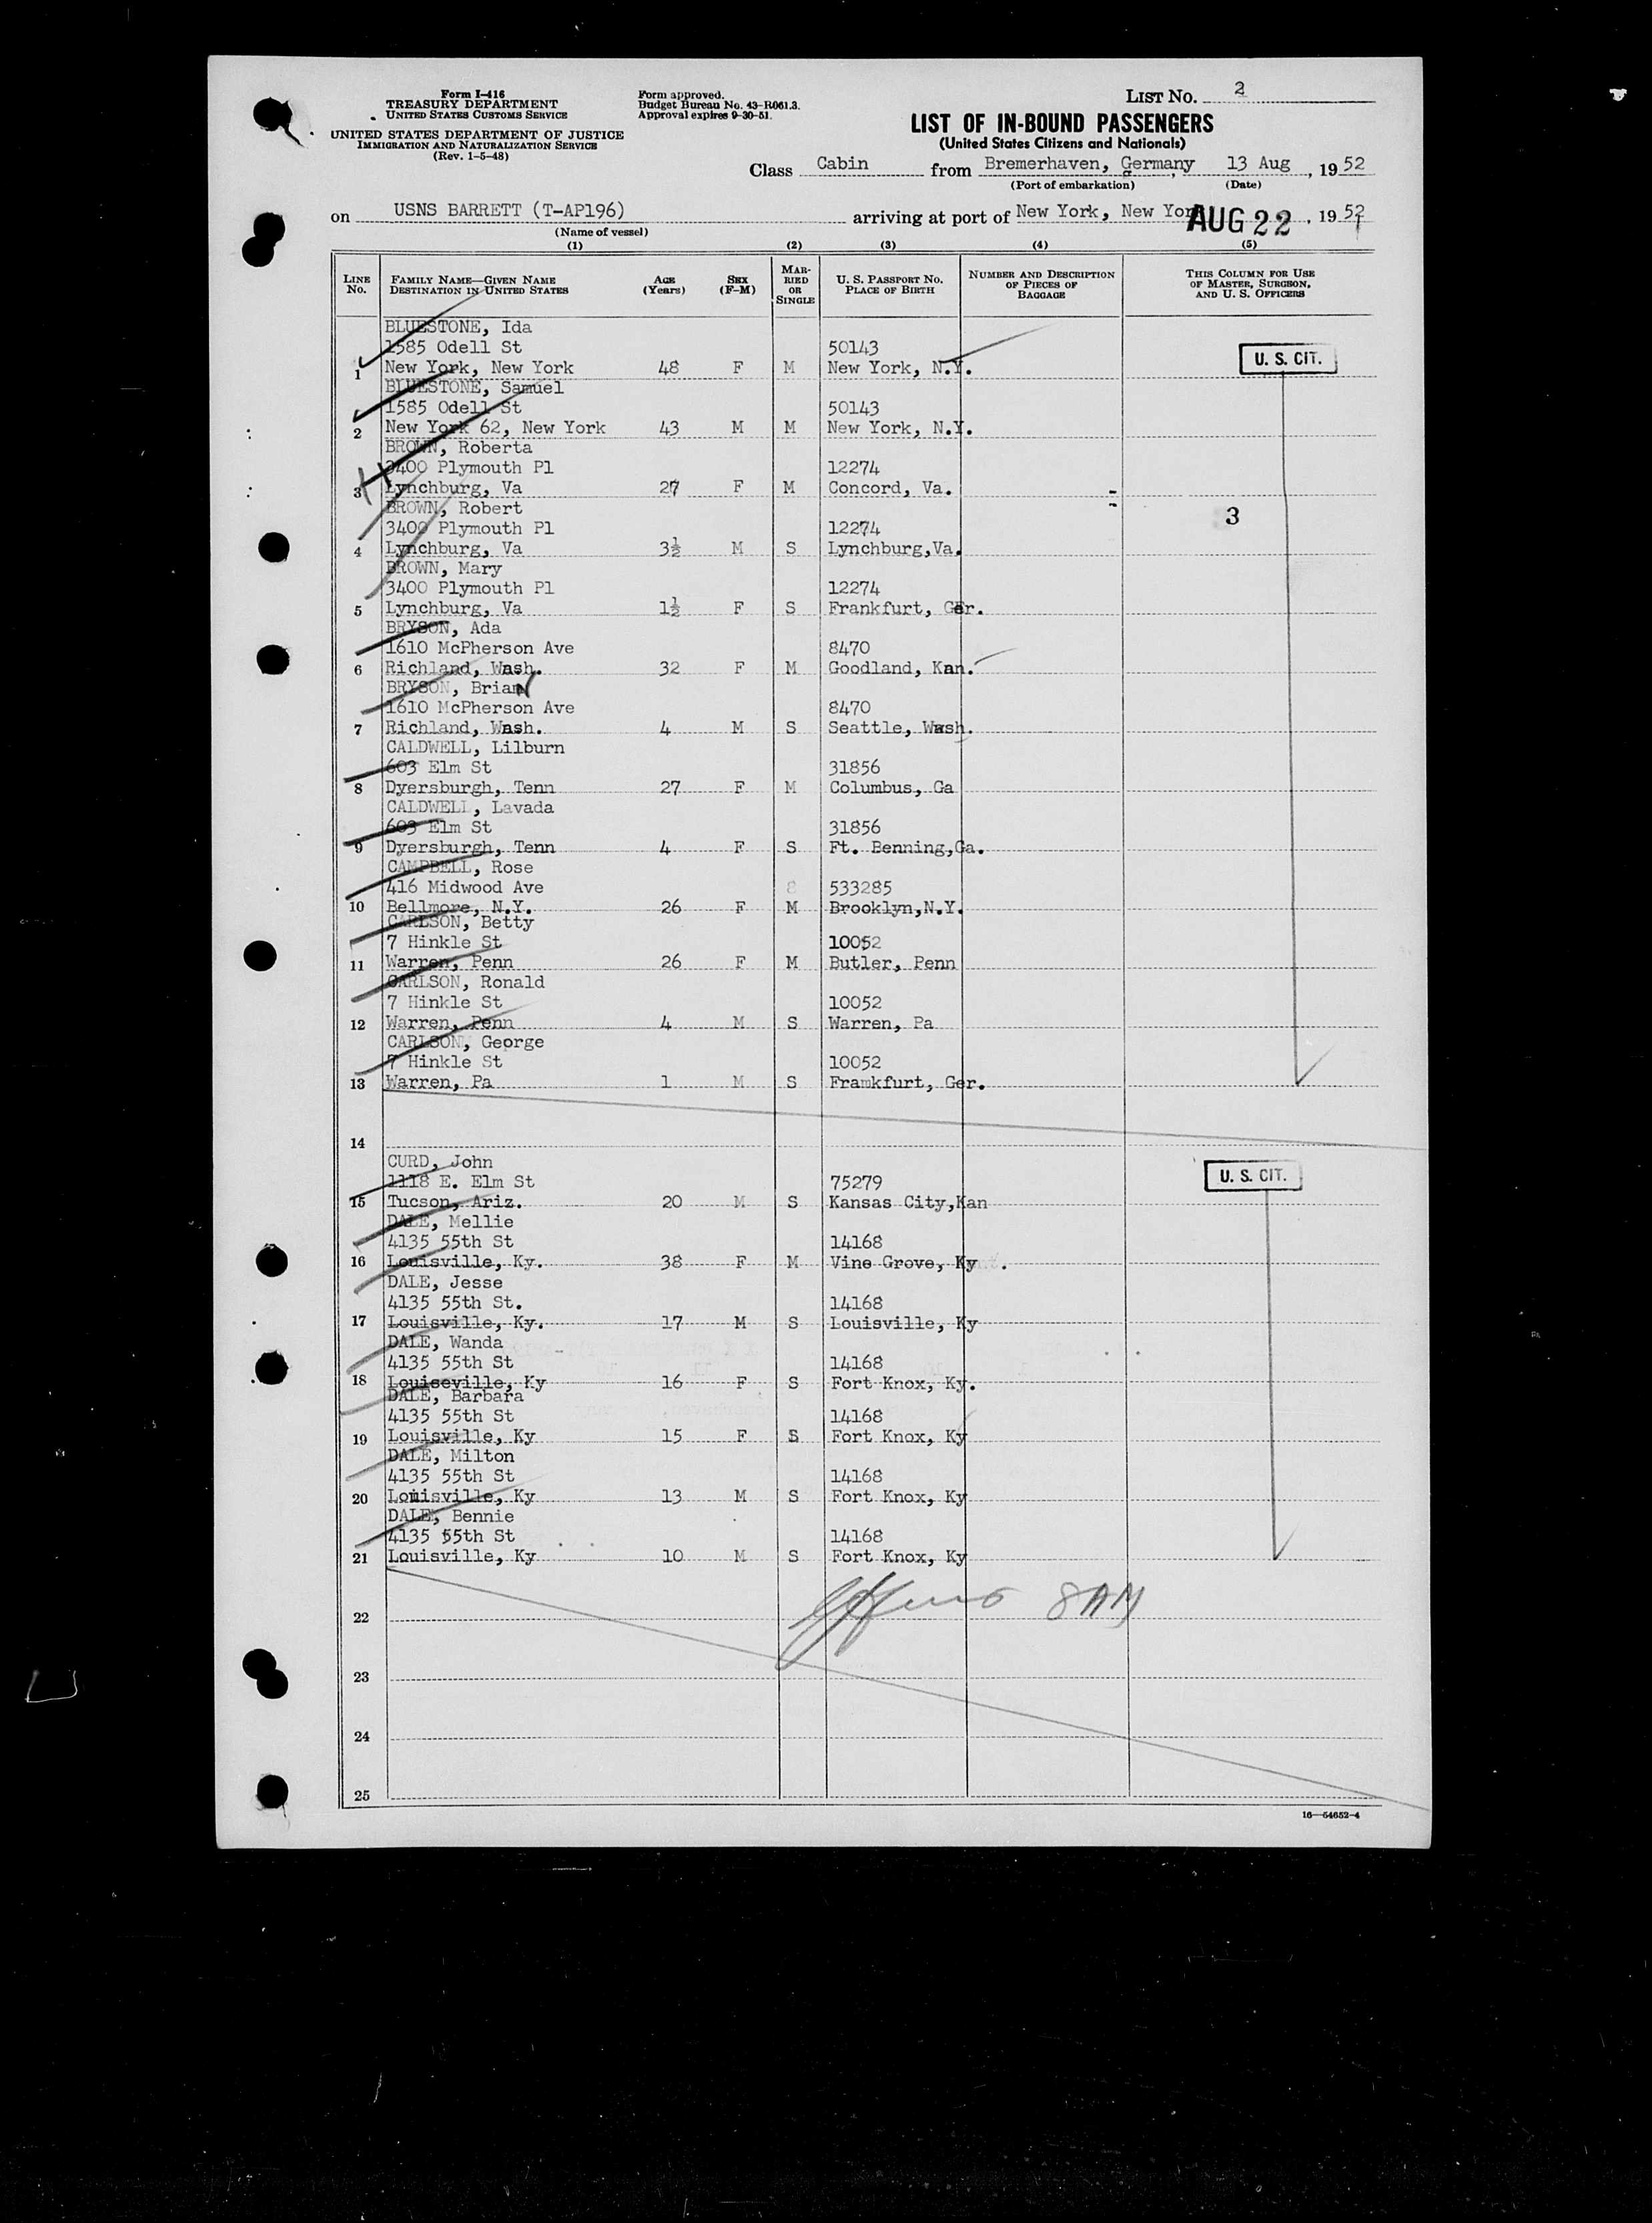 Form I-416
TREASURY DEPARTMENT
UNITED STATES CUSTOMS SERVICE
UNITED STATES DEPARTMENT OF JUSTICE
IMMIGRATION AND NATURALIZATION SERVICE
(Rev. 1-5-48)
Form approved.
Budget Bureau No. 43-R061.3.
Approval expires 9-30-51.
LIST No. 2
LIST OF IN-BOUND PASSENGERS
(United States Citizens and Nationals)
Class Cabin from Bremerhaven, Germany, 13 Aug, 1952
(Port of embarkation) (Date)
on USNS BARRETT (T-AP196) arriving at port of New York, New Yor AUG 22, 1952
(Name of vessel)
(1) (2) (3) (4) (5)
LINE No. FAMILY NAME—GIVEN NAME DESTINATION IN UNITED STATES AGE (Years) SEX (F-M) MARRIED OR SINGLE U. S. PASSPORT No. PLACE OF BIRTH NUMBER AND DESCRIPTION OF PIECES OF BAGGAGE THIS COLUMN FOR USE OF MASTER, SURGEON, AND U. S. OFFICERS
BLUESTONE, Ida
1585 Odell St 50143
1 New York, New York 48 F M New York, N.Y. U. S. CIT.
BLUESTONE, Samuel
1585 Odell St 50143
2 New York 62, New York 43 M M New York, N.Y.
BROWN, Roberta
3400 Plymouth Pl 12274
3 Lynchburg, Va 27 F M Concord, Va.
BROWN, Robert 3
3400 Plymouth Pl 12274
4 Lynchburg, Va 3½ M S Lynchburg,Va.
BROWN, Mary
3400 Plymouth Pl 12274
5 Lynchburg, Va 1½ F S Frankfurt, Ger.
BRYSON, Ada
1610 McPherson Ave 8470
6 Richland, Wash. 32 F M Goodland, Kan.
BRYSON, Brian
1610 McPherson Ave 8470
7 Richland, Wash. 4 M S Seattle, Wash.
CALDWELL, Lilburn
603 Elm St 31856
8 Dyersburgh, Tenn 27 F M Columbus, Ga
CALDWELL, Lavada
603 Elm St 31856
9 Dyersburgh, Tenn 4 F S Ft. Benning,Ga.
CAMPBELL, Rose
416 Midwood Ave 8 533285
10 Bellmore, N.Y. 26 F M Brooklyn,N.Y.
CARLSON, Betty
7 Hinkle St 10052
11 Warren, Penn 26 F M Butler, Penn
CARLSON, Ronald
7 Hinkle St 10052
12 Warren, Penn 4 M S Warren, Pa
CARLSON, George
7 Hinkle St 10052
13 Warren, Pa 1 M S Framkfurt, Ger.
14
CURD, John U. S. CIT.
1118 E. Elm St 75279
15 Tucson, Ariz. 20 M S Kansas City,Kan
DALE, Mellie
4135 55th St 14168
16 Louisville, Ky. 38 F M Vine Grove, Ky .
DALE, Jesse
4135 55th St. 14168
17 Louisville, Ky. 17 M S Louisville, Ky
DALE, Wanda
4135 55th St 14168
18 Louiseville, Ky 16 F S Fort Knox, Ky.
DALE, Barbara
4135 55th St 14168
19 Louisville, Ky 15 F S Fort Knox, Ky
DALE, Milton
4135 55th St 14168
20 Louisville, Ky 13 M S Fort Knox, Ky
DALE, Bennie
4135 55th St 14168
21 Louisville, Ky 10 M S Fort Knox, Ky
8AM
22
23
24
25
16—54652-4